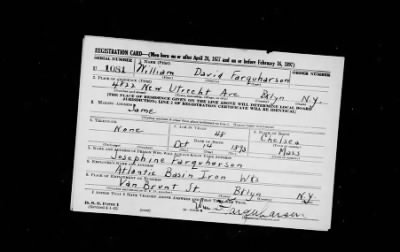 REGISTRATION CARD—(Men born on or after April 28, 1877 and on or before February 16, 1897)
SERIAL NUMBER 1. NAME (Print) ORDER NUMBER
U 1081 William David Farquharson
2. PLACE OF RESIDENCE (Print)
4822 New Utrecht Ave Bklyn N.Y.
[THE PLACE OF RESIDENCE GIVEN ON THE LINE ABOVE WILL DETERMINE LOCAL BOARD
JURISDICTION; LINE 2 OF REGISTRATION CERTIFICATE WILL BE IDENTICAL]
3. MAILING ADDRESS
Same
4. TELEPHONE 5. AGE IN YEARS 6. PLACE OF BIRTH
None 48 Chelsea
DATE OF BIRTH
Oct 14 1893 Mass
7. NAME AND ADDRESS OF PERSON WHO WILL ALWAYS KNOW YOUR ADDRESS
Josephine Farquharson
8. EMPLOYER'S NAME AND ADDRESS
Atlantic Basin Iron Wks
9. PLACE OF EMPLOYMENT OR BUSINESS
Van Brunt St. Bklyn N.Y.
I AFFIRM THAT I HAVE VERIFIED ABOVE ANSWERS AND THAT THEY ARE TRUE.
D.S.S. Form 1
Farquharson